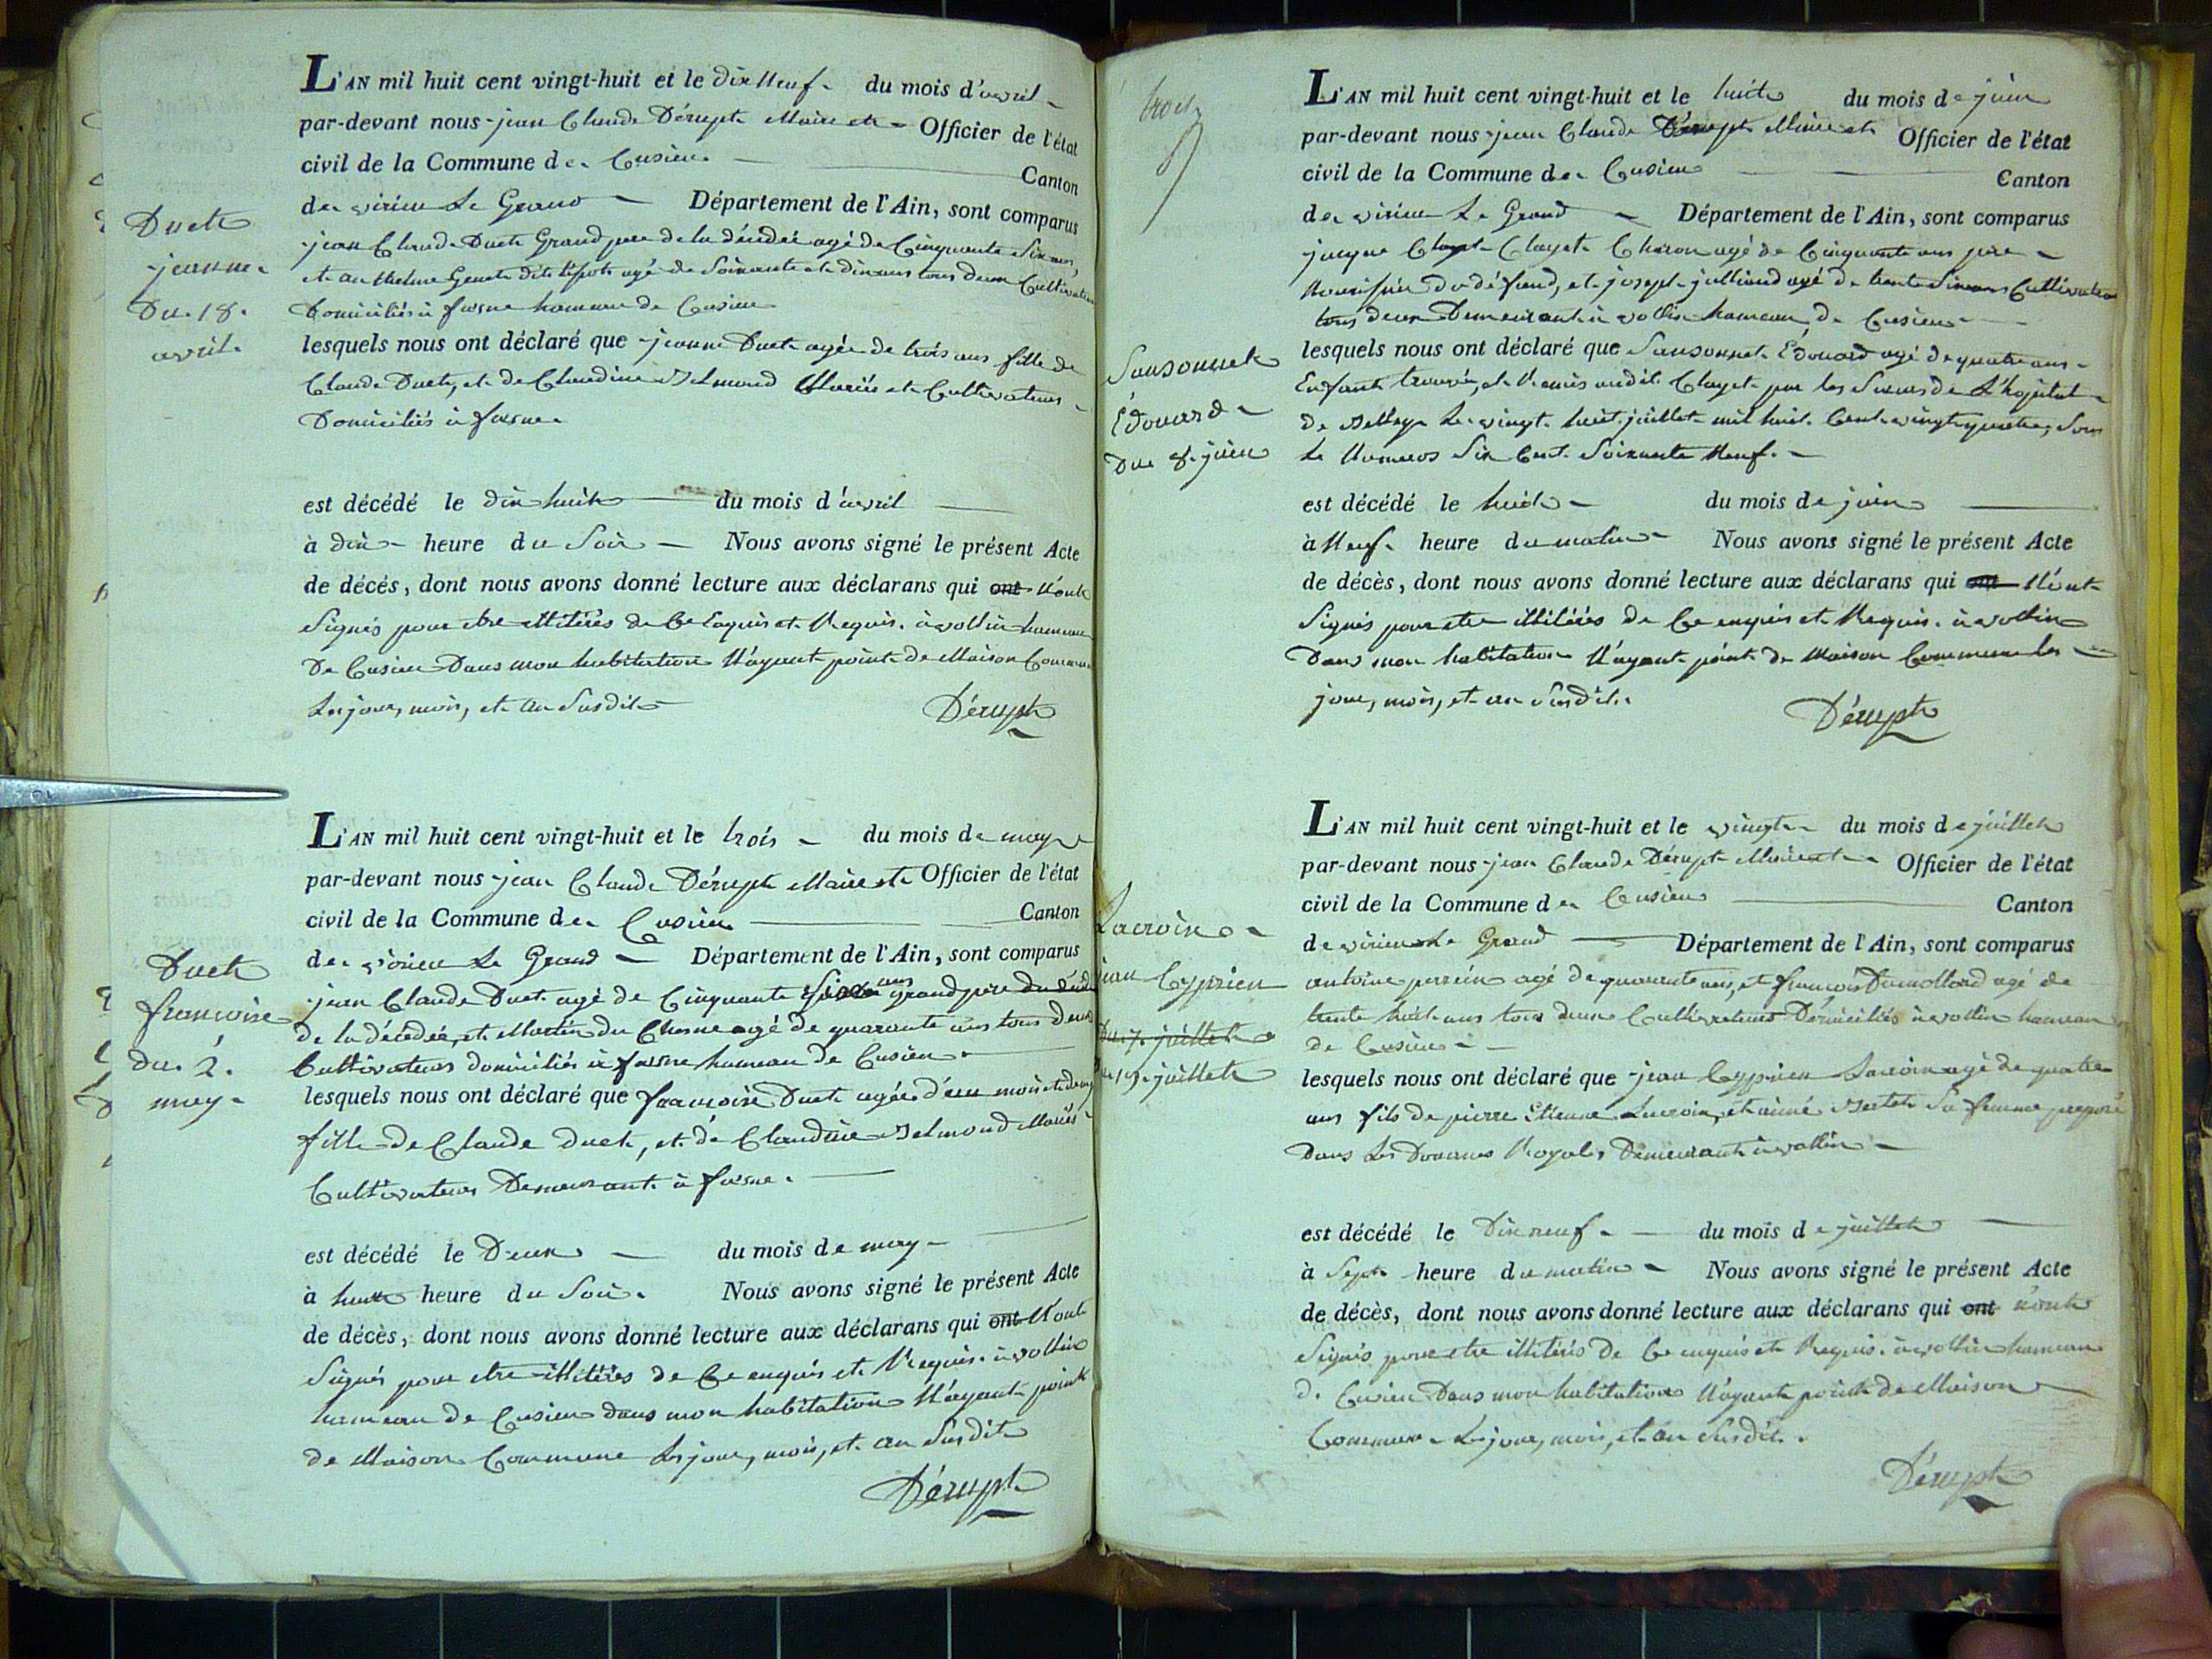 L'AN mil huit cent vingt-huit et le dix Neuf du mois d'avril
par-devant nous jean Claude Dérupt Maire et Officier de l'état
civil de la Commune de Cusieu Canton
de virieu Le Grand Département de l'Ain, sont comparus
Duet
jeanne
Du 18.
avril
jean Claude Duet Grand pere de la décédée agé de Cinquante Six ans,
et anthelme Genet dit agé de Soixante et dix ans tous deux Cultivateurs
Domiciliés à fusne hameau de Cusieu
lesquels nous ont déclaré que jeanne Duet agée de trois ans fille de
Claude Duet, et de Claudine Belmond Mariés et Cultivateurs
Domiciliés à fusne
est décédé le dix huit du mois d'avril
à dix heure du Soir Nous avons signé le présent Acte
de décés, dont nous avons donné lecture aux déclarans qui ont N'ont
Signés pour etre illitérés de Ce Enquis et Requis. à vollin hameau
De Cusieu Dans mon habitation N'ayant point de Maison Commune
Les jour, mois, et an Susdit
Dérupt
L'AN mil huit cent vingt-huit et le trois du mois de may
par-devant nous jean Claude Dérupt Maire et Officier de l'état
civil de la Commune de Cusieu Canton
de virieu Le Grand Département de l'Ain, sont comparus
Duet
francoise
du 2.
may
jean Claude Duet agé de Cinquante Six ans grand pere du décédé
de la décédée, et Martin du Chesne agé de quarante ans tous deux
Cultivateurs domiciliés à fusne hameau de Cusieu
lesquels nous ont déclaré que francoise Duet agée d'un mois et demy
fille de Claude Duet, et de Claudine Belmond Mariés
Cultivateurs Demeurant à fusne.
est décédé le Deux du mois de may
à huit heure du Soir. Nous avons signé le présent Acte
de décès, dont nous avons donné lecture aux déclarans qui ont N'ont
Signés pour etre illitérés de Ce enquis et Requis. à vollin
hameau de Cusieu dans mon habitation N'ayant point
de Maison Commune Les jour, mois, et an Susdit
Dérupt
L'AN mil huit cent vingt-huit et le huit du mois de juin
par-devant nous jean Claude Dérupt Maire et Officier de l'état
civil de la Commune de Cusieu Canton
de virieu Le Grand Département de l'Ain, sont comparus
Sansonnet
Édouard
Du 8. juin
jacque Clayet Charon agé de Cinquante ans pere
Nourissier du défund, et joseph julliand agé de trente Six ans Cultivateur
tous deux Demeurant à vollin hameau de Cusieu
lesquels nous ont déclaré que Sansonnet Édouard agé de quatre ans
Enfant trouvé, et Remis audit Clayet par les Soeurs de L'hopital
de Belley Le vingt huit juillet mil huit Cent vingt quatre, Sous
Le Numeros Six Cent Soixante Neuf.
est décédé le huit du mois de juin
à Neuf heure du matin Nous avons signé le présent Acte
de décès, dont nous avons donné lecture aux déclarans qui ont N'ont
Signés pour etre illitérés de Ce enquis et Requis. à vollin
Dans mon habitation N'ayant point de Maison Commune les
jour, mois, et an Susdit.
Dérupt
L'AN mil huit cent vingt-huit et le vingt du mois de juillet
par-devant nous jean Claude Dérupt Maire et Officier de l'état
civil de la Commune de Cusieu Canton
de virieu Le Grand Département de l'Ain, sont comparus
Lacroix
jean Cyprien
Du 7. juillet
Du 19. juillet
antoine perrin agé de quarante ans, et francois Dumollard agé de
trente huit ans tous deux Cultivateurs Domiciliés à vollin hameau
de Cusieu
lesquels nous ont déclaré que jean Cyprien Lacroix agé de quatre
ans fils de pierre Etienne Lacroix, et aimé Bertet Sa femme preposé
Dans Les Douanes Royales Demeurant à vollin
est décédé le Dix neuf du mois de juillet
à Sept heure du matin Nous avons signé le présent Acte
de décès, dont nous avons donné lecture aux déclarans qui ont n'ont
Signés pour etre illitérés de Ce enquis et Requis. à vollin hameau
de Cusieu Dans mon habitation N'ayant point de Maison
Commune Les jour, mois, et an Susdit.
Dérupt